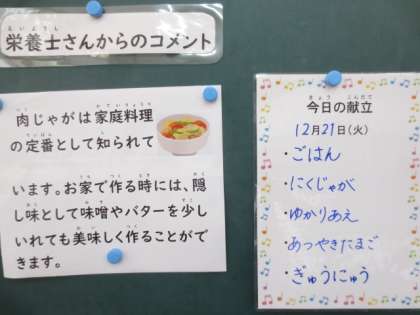 栄養士さんからのコメント
肉じゃがは家庭料理
の定番として知られて
います。お家で作る時には、隠
し味として味噌やバターを少し
いれても美味しく作ることがで
きます。
今日の献立
12月21日(火)
・ごはん
・にくじゃが
・ゆかりあえ
・あつやきたまご
・ぎゅうにゅう